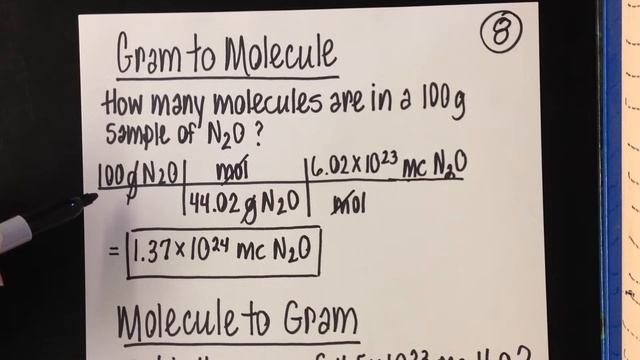 8
Gram to Molecule
How many molecules are in a 100g
sample of N₂O?
100g N₂O | mol | 6.02×10²³ mc N₂O
44.02g N₂O | mol
= 1.37×10²⁴ mc N₂O
Molecule to Gram